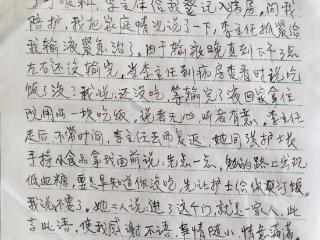 了了眼科，李主任给我登记入病房，问我
陪护，我把家庭情况说了一下，李主任抓紧给
我输液紧急治了，由于输液晚直到下午3点
左右还没输完，当李主任到病房查看时说吃
饭了没？我说还没吃，等输完了液回家拿住
院用品一块吃饭，说者无心听者有意，李主任
走后不常时间，李主任去而复返，她同张护士长
手持小食品拿我面前说：先点一点，的路上出现
低血糖，要是早知道你没吃，先让护士给你订饭
我说不要了，她二人说进了这个门，就是一家人，此
言此语，使我感谢不语，事情随小情意满满